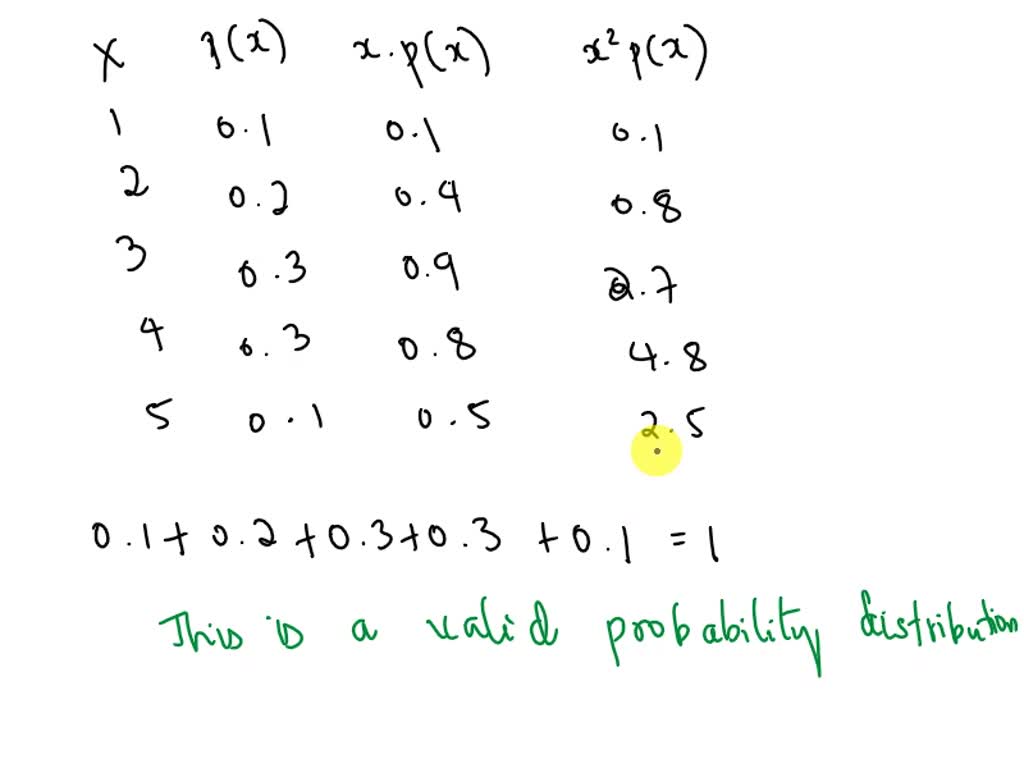 X p(x) x.p(x) x²p(x)
1 0.1 0.1 0.1
2 0.2 0.4 0.8
3 0.3 0.9 2.7
4 0.3 0.8 4.8
5 0.1 0.5 2.5
0.1+0.2+0.3+0.3+0.1=1
This is a valid probability distribution